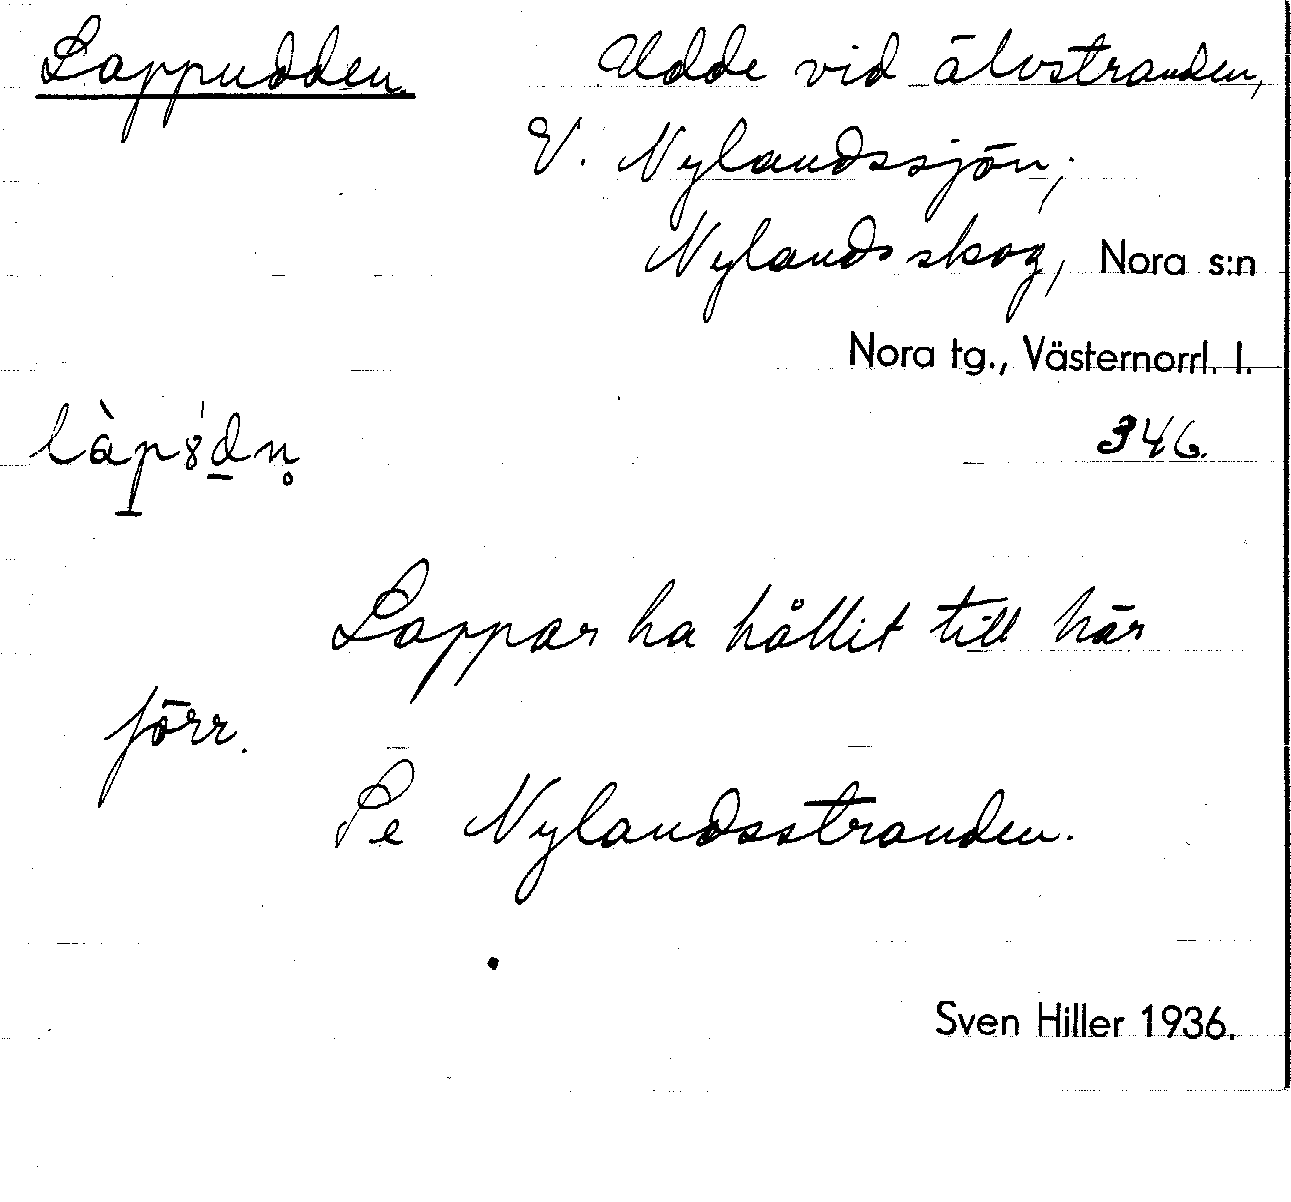 Lappudden Udde vid älvstranden,
V. Nylandssjön;
Nylandsskog, Nora s:n
Nora tg., Västernorrl. l.
346.
Lappar ha hållit till här
förr.
Se Nylandsstranden.
Sven Hiller 1936.